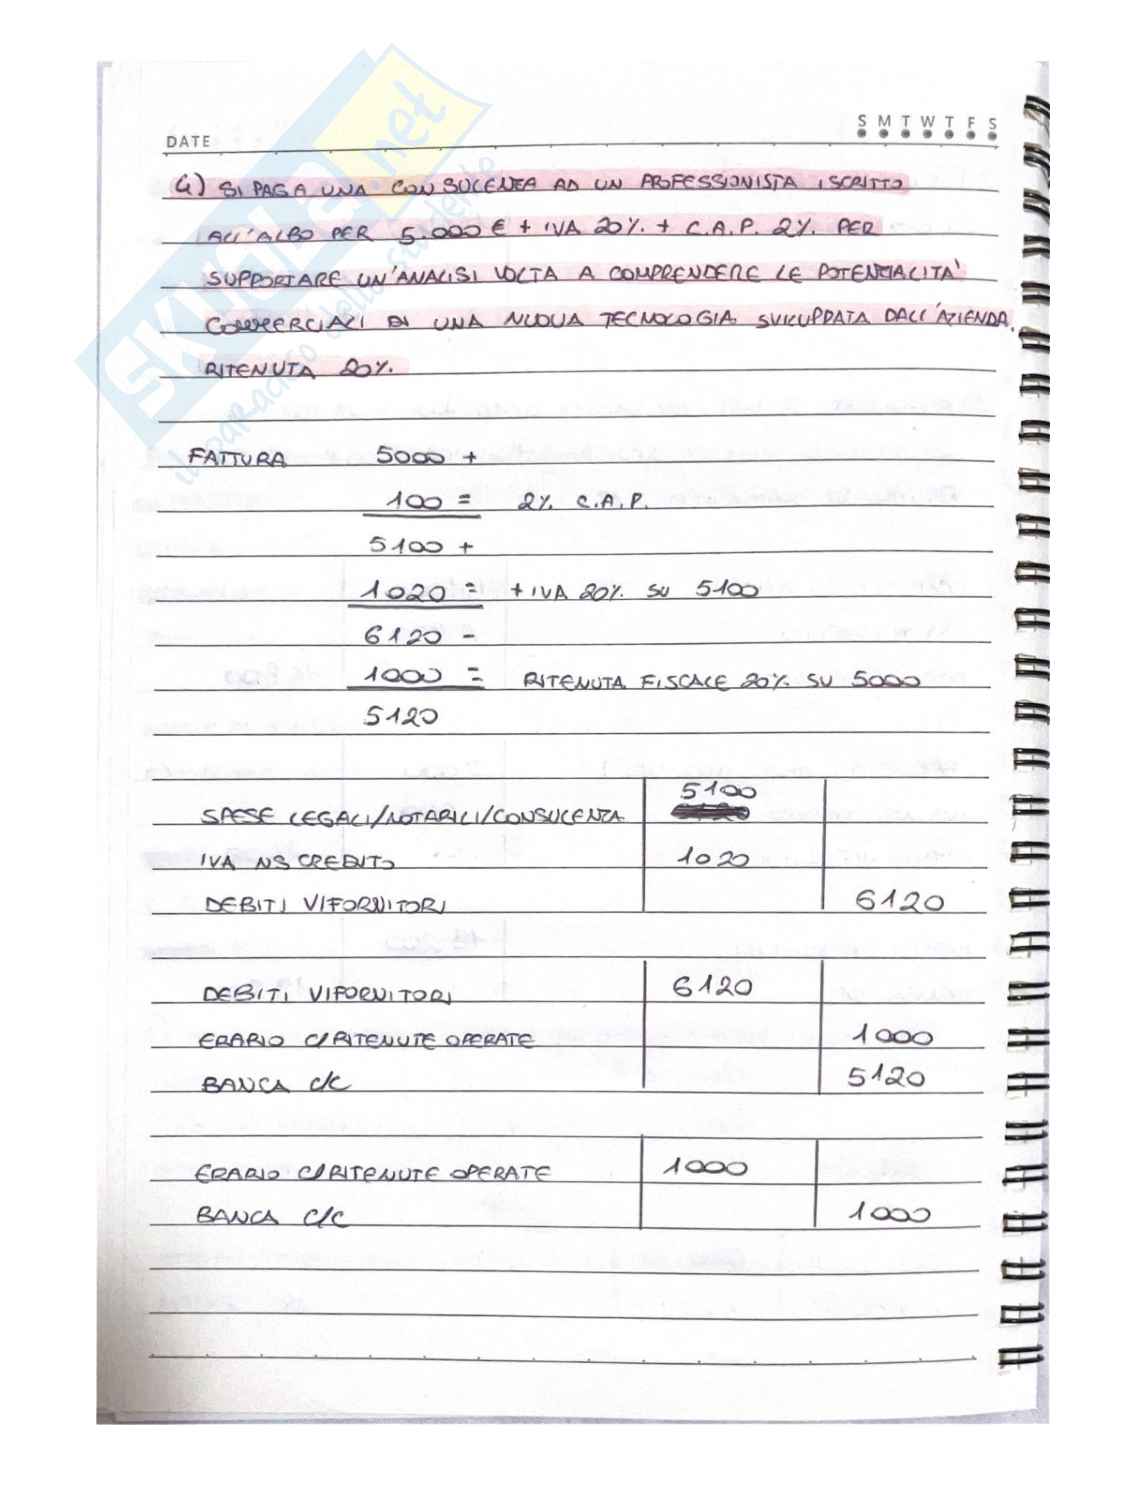 SKUOLA.net
il paradiso dello studente
DATE
S M T W T F S
4) SI PAGA UNA CONSULENZA AD UN PROFESSIONISTA ISCRITTO
ALL'ALBO PER 5.000 € + IVA 20% + C.A.P. 2% PER
SUPPORTARE UN'ANALISI VOLTA A COMPRENDERE LE POTENZIALITA'
COMMERCIALI DI UNA NUOVA TECNOLOGIA SVILUPPATA DALL'AZIENDA.
RITENUTA 20%.
FATTURA 5000 +
100 = 2% C.A.P.
5100 +
1020 = + IVA 20% SU 5100
6120 -
1000 = RITENUTA FISCALE 20% SU 5000
5120
SPESE LEGALI/NOTARILI/CONSULENZA 5100
IVA NS CREDITO 1020
DEBITI V/FORNITORI 6120
DEBITI V/FORNITORI 6120
ERARIO C/RITENUTE OPERATE 1000
BANCA C/C 5120
ERARIO C/RITENUTE OPERATE 1000
BANCA C/C 1000